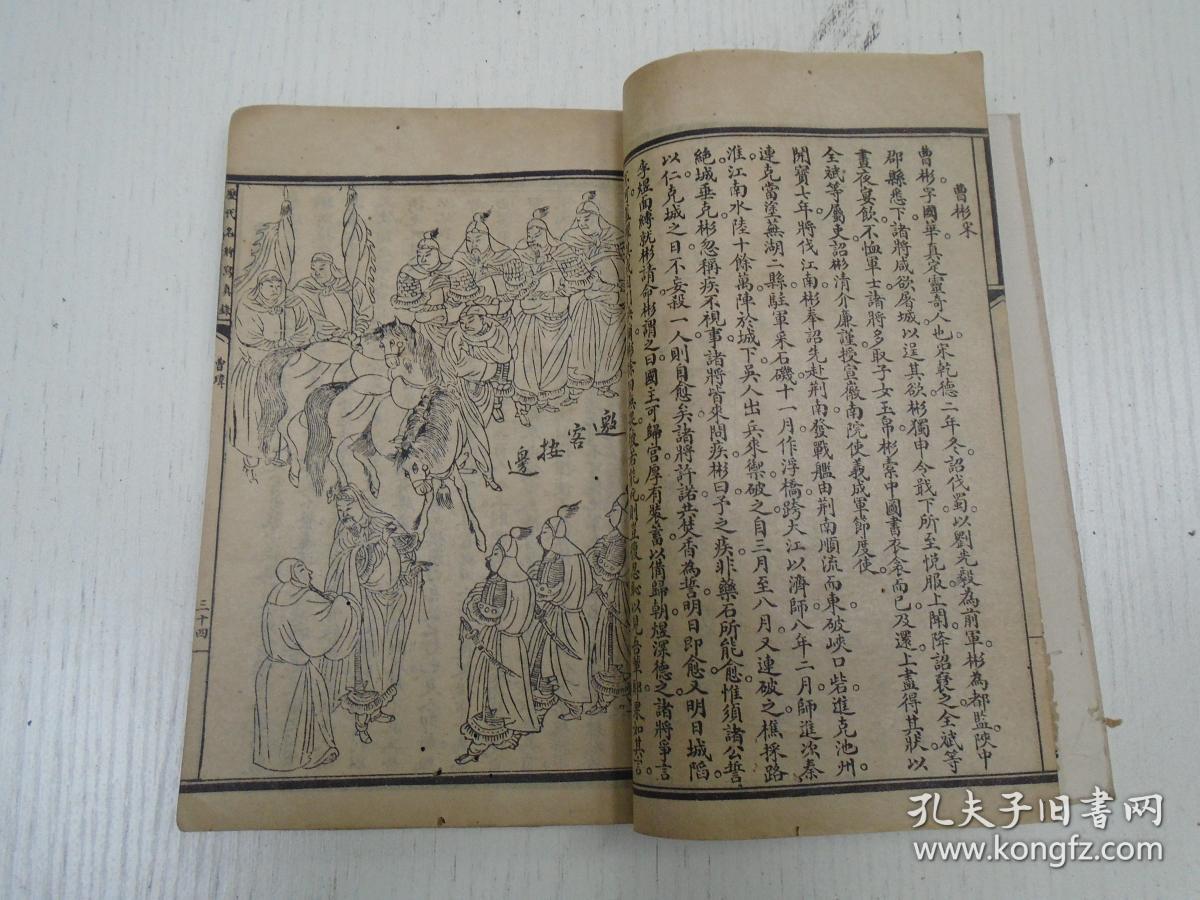 曹彬宋
曹彬。字國華。真定靈奇人也。宋乾德二年冬。詔伐蜀。以劉光毅為前軍。彬為都監。陝中
郡縣悉下。諸將咸欲屠城以逞其欲。彬獨申令戢下。所至悅服。上聞降詔褒之。全斌等
晝夜宴飲。不恤軍士。諸將多取子女玉帛。彬橐中圖書衣衾而已。及還。上盡得其狀。以
全斌等屬吏。詔彬清介廉謹。授宣徽南院使義成軍節度使。
開寶七年將伐江南。彬奉詔先赴荆南發戰艦。由荆南順流而東。破峽口砦。進克池州。
連克當塗蕪湖二縣。駐軍采石磯。十一月作浮橋跨大江以濟師。八年二月師進次秦
淮。江南水陸十餘萬陣於城下。吳人出兵來禦。破之。自三月至八月又連破之。樵採路
絕。城垂克。彬忽稱疾不視事。諸將皆來問疾。彬曰予之疾非藥石所能愈。惟須諸公誓
以仁。克城之日不妄殺一人。則自愈矣。諸將許諾。共焚香為誓。明日即愈。又明日城陷。
李煜面縛就彬請命。彬謂之曰國主可歸宮厚有裝蓄以備歸朝。煜深德之。諸將爭言
歷代名將寫真錄
曹瑋
三十四
邀客按邊
孔夫子旧书网
www.kongfz.com